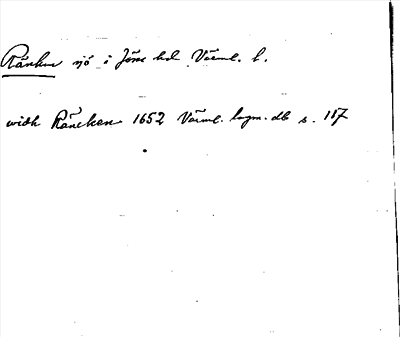 Ränken sjö i Jösse hd Värml. l.
widh Räncken 1652 Värml. lagm. db s. 187